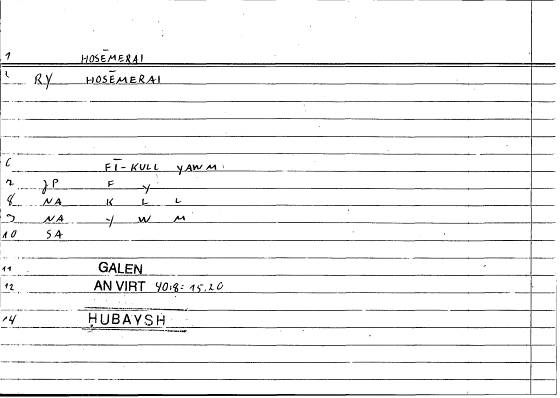 1 HOSĒMERAI
2 RY HOSĒMERAI
6 FĪ-KULL YAWM
7 JP F Y
8 NA K L L
9 NA Y W M
10 SA
11 GALEN
12 AN VIRT 40:8=15.20
14 ḤUBAYSH